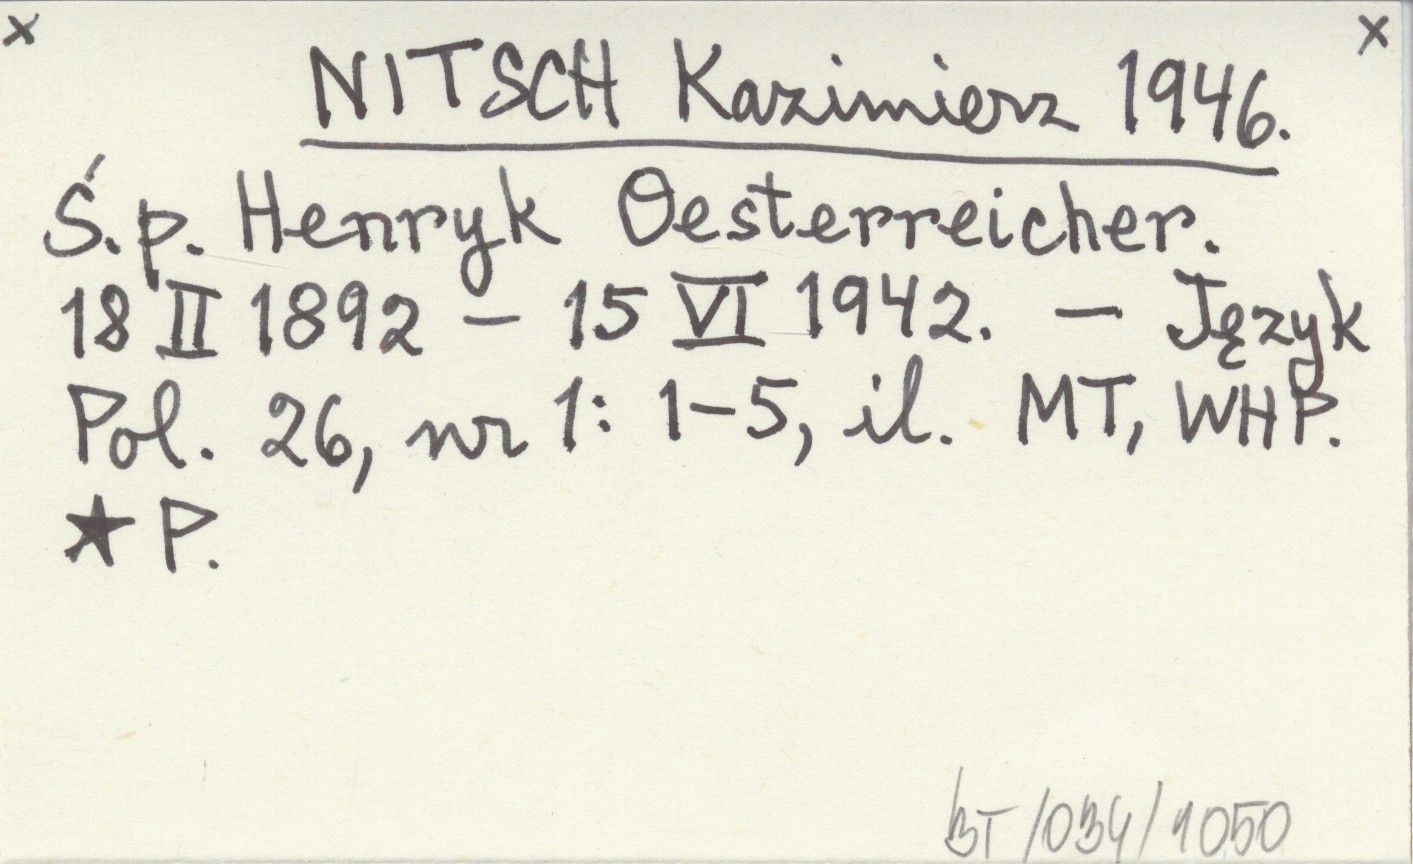 x x
NITSCH Kazimierz 1946.
Ś.p. Henryk Oesterreicher.
18 II 1892 – 15 VI 1942. – Język
Pol. 26, nr 1: 1–5, il. MT, WHP.
★ P.
BT/034/1050